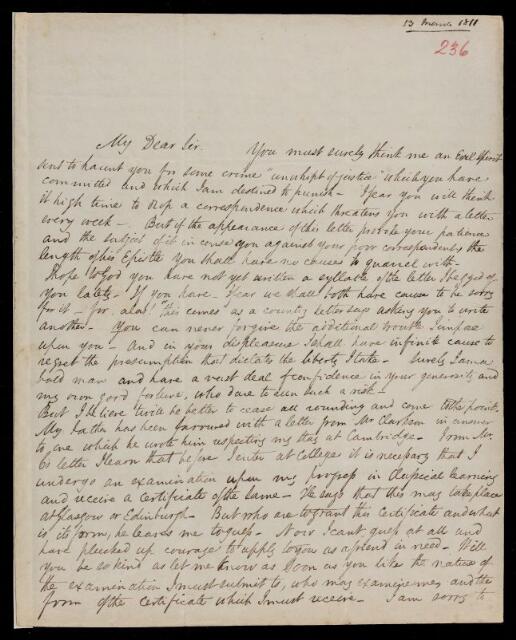 13 March 1811
236
My Dear Sir. You must surely think me an Evil spirit
sent to haunt you for some crime "unwhipt of justice" which you have
committed and which I am destined to punish - I fear you will think
it high time to stop a correspondence which threatens you with a letter
every week - But if the appearance of this letter provoke your patience
and the subject of it incense you against your poor correspondent, the
length of his Epistle you shall have no cause to quarrel with -
I hope to God you have not yet written a syllable of the letter I begged of
you lately - If you have - I fear we shall both have cause to be sorry
for it - for, alas! this comes as a country letter says asking you to write
another - You can never forgive the additional trouble I impose
upon you - And in your displeasure I shall have infinite cause to
regret the presumption that dictates the liberty I take - Surely I am a
bold man and have a vast deal of confidence in your generosity and
my own good fortune, who dare to run such a risk -
But I believe it will be better to cease all sounding and come to the point.
My Father has been favoured with a letter from Mr Clarkson in answer
to one which he wrote him respecting my stay at Cambridge - From Mr.
C's letter I learn that before I enter at College it is necessary that I
undergo an examination upon my progress in Classical learning
and receive a Certificate of the same - He says that this may take place
at Glasgow or Edinburgh - But who are to grant this Certificate and what
is its form, he leaves me to guess - Now I can't guess at all and
have plucked up courage to apply to you as a friend in need - Will
you be so kind as let me know as soon as you like the nature of
the examination I must submit to, who may examine me, and the
form of the Certificate which I must receive - I am sorry to